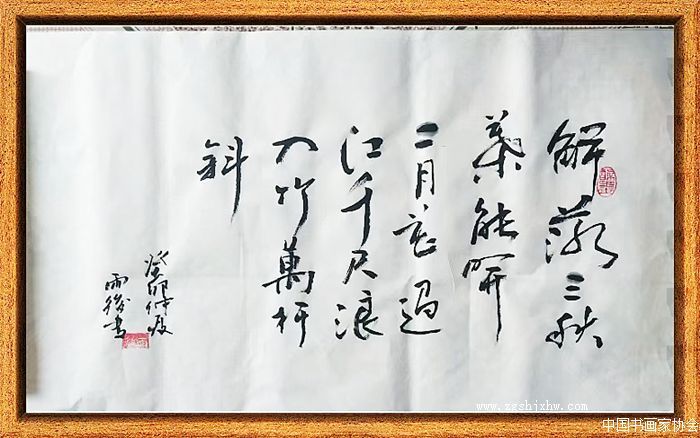 解落三秋
葉能開
二月花過
江千尺浪
入竹萬竿
斜
癸卯仲夏
雨後書
www.zgshjxhw.com
中国书画家协会